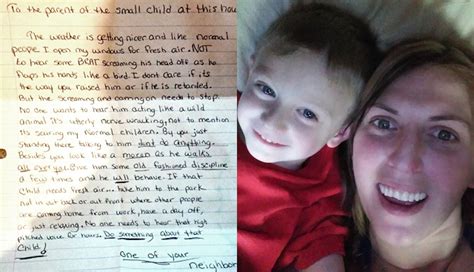 To the parent of the small child at this hou
The weather is getting nicer and like normal
people I open my windows for fresh air. NOT
to hear some BRAT screaming his head off as he
flaps his hands like a bird. I dont care if its
the way you raised him or if he is retarded.
But the screaming and carrying on needs to stop.
No one wants to hear him acting like a wild
animal it's utterly nerve wraking, not to mention
its scaring my normal children. By you just
standing there talking to him dont do anything.
Besides you look like a moron as he walks
all over you. Give him some old fashioned discipline
a few times and he will behave. If that
child needs fresh air... take him to the park
not in out back or out front where other people
are coming home from work, have a day off,
or just relaxing. No one needs to hear that high
pitched voice for hours. Do something about that
Child!
one of your
neighbor